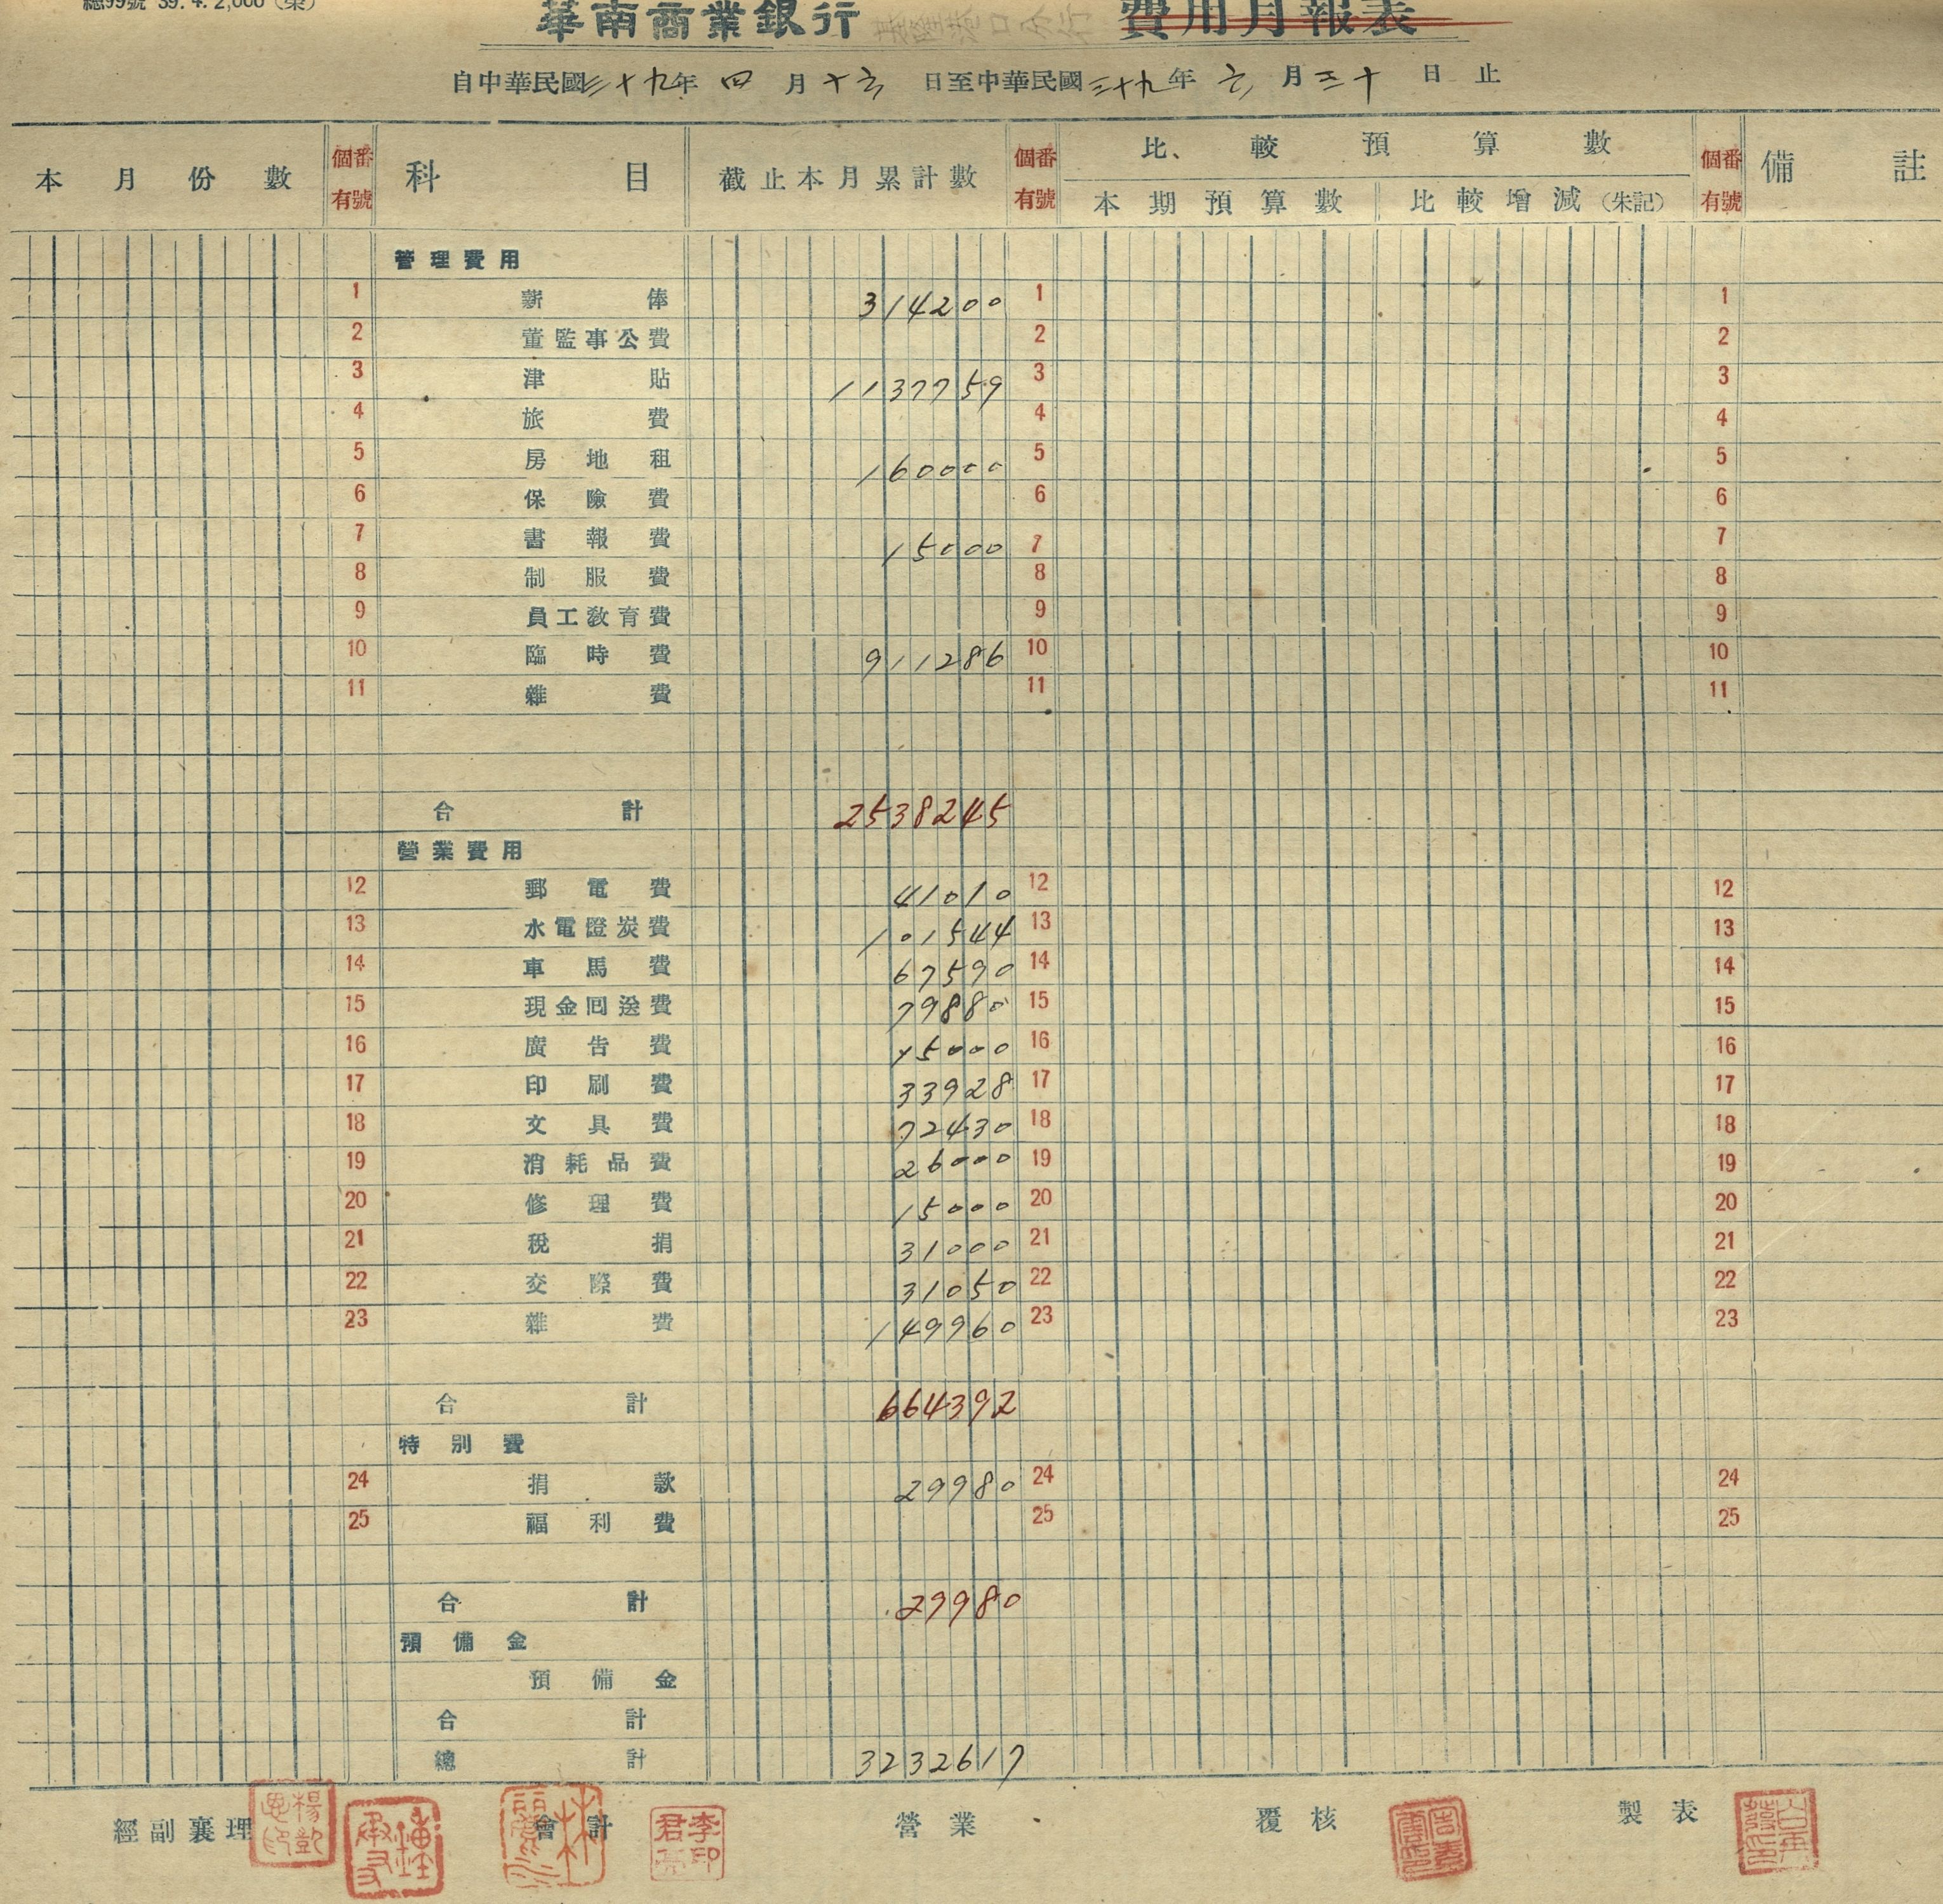 總99號 39.4.2,000（榮）
華南商業銀行 基隆港口分行 費用月報表
自中華民國三十九年四月十六日至中華民國三十九年六月三十日止
本月份數 個有 番號 科目 截止本月累計數 個有 番號 比較預算數 個有 番號 備註
本期預算數 比較增減（朱記）
管理費用
1 薪俸 314200 1 1
2 董監事公費 2 2
3 津貼 1137759 3 3
4 旅費 4 4
5 房地租 160000 5 5
6 保險費 6 6
7 書報費 15000 7 7
8 制服費 8 8
9 員工教育費 9 9
10 臨時費 911286 10 10
11 雜費 11 11
合計 2538245
營業費用
12 郵電費 41010 12 12
13 水電燈炭費 101544 13 13
14 車馬費 67590 14 14
15 現金回送費 79880 15 15
16 廣告費 15000 16 16
17 印刷費 33928 17 17
18 文具費 72430 18 18
19 消耗品費 26000 19 19
20 修理費 15000 20 20
21 稅捐 31000 21 21
22 交際費 31050 22 22
23 雜費 149960 23 23
合計 664392
特別費
24 捐款 29980 24 24
25 福利費 25 25
合計 29980
預備金
預備金
合計
總計 3232617
經副襄理 會計 李君印 營業 覆核 製表